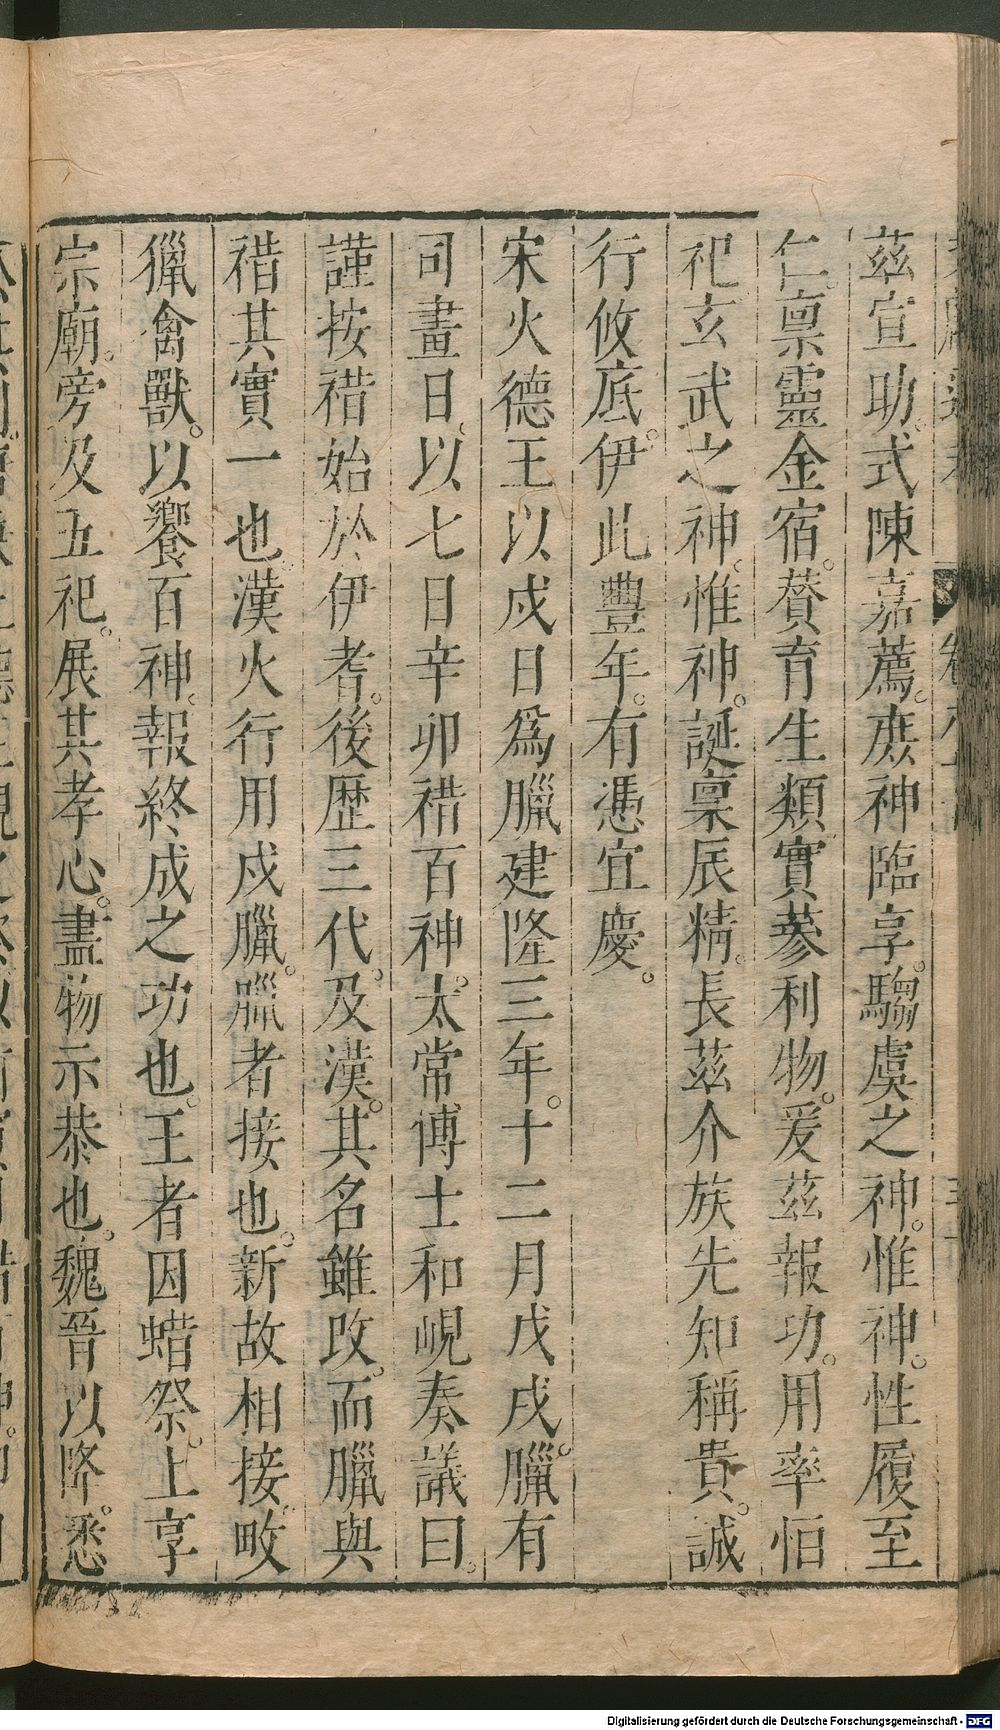 茲宣助式陳嘉薦。庶神臨享。騶虞之神。惟神。性履至
仁。禀靈金宿。賛育生類實蔘利物。爰茲報功。用率怛
祀玄武之神、惟神。誕禀辰精。長茲介族先知稱貴。誠
行攸底。伊此豐年。有憑宜慶。
宋火德王以戌日爲臘建隆三年。十二月戊戌臘。有
司畫日、以七日辛卯䄍百神。太常博士和峴奏議曰。
謹按䄍始於伊耆。後歴三代。及漢。其名雖改。而臘與
䄍其實一也。漢火行用戌臘。臘者接也。新故相接。畋
獵禽獸。以饗百神、報終成之功也。王者因蜡祭。上享
宗廟。旁及五祀。展其孝心。盡物示恭也。魏晉以降。悉
Digitalisierung gefördert durch die Deutsche Forschungsgemeinschaft - DFG